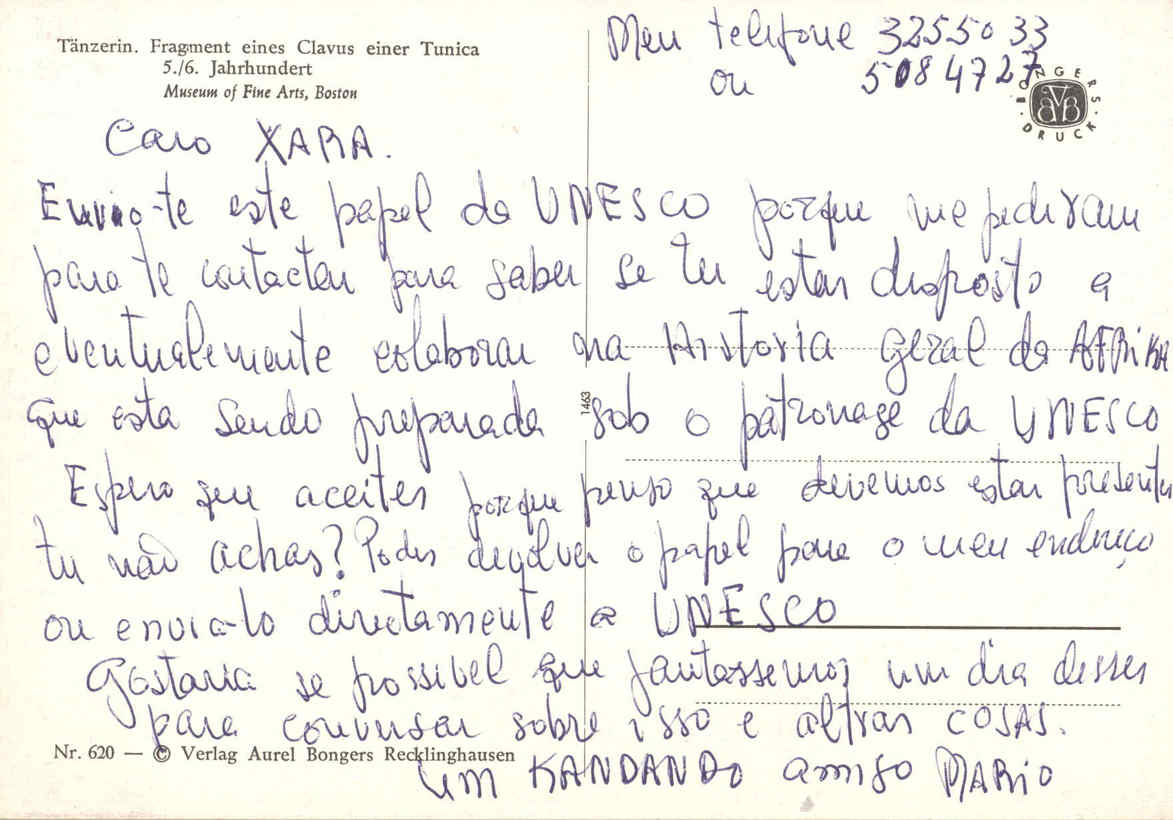 Tänzerin. Fragment eines Clavus einer Tunica
5./6. Jahrhundert
Museum of Fine Arts, Boston
Meu telefone 3255033
ou 5084727
BONGERS DRUCK
Caro XARA.
Envio-te este papel da UNESCO porque me pediram
para te contactar para saber se tu estas disposto a
eventualemente colaborar na Historia geral da AFRIKA
que esta sendo preparada sob o patronage da UNESCO
1463
Espero que aceites porque penso que devemos estar presentes
tu não achas? Podes devolver o papel para o meu endereço
ou envia-lo directamente a UNESCO
Gostaria se possibel que jantassemos um dia desses
para conversar sobre isso e altras cosas.
Nr. 620 — © Verlag Aurel Bongers Recklinghausen
um KANDANDO amigo MARIO